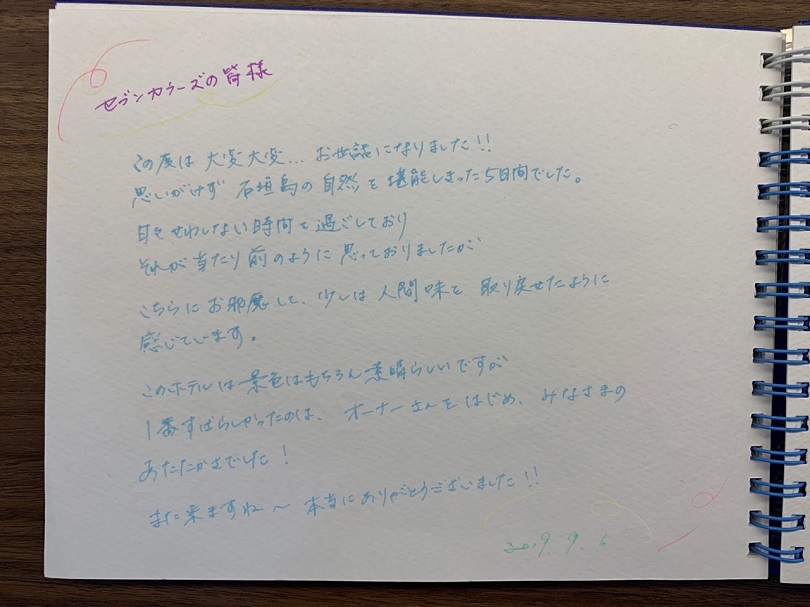 セブンカラーズの皆様
この度は 大変大変... お世話になりました!!
思いがけず 石垣島の自然を 堪能しきった5日間でした。
日々せわしない時間を過ごしており
それが当たり前のように思っておりましたが
こちらにお邪魔して、少しは人間味を 取り戻せたように
感じています。
このホテルは景色はもちろん素晴らしいですが
1番すばらしかったのは、オーナーさんをはじめ、みなさまの
あたたかさでした!
また来ますね〜 本当にありがとうございました!!
2019. 9. 6